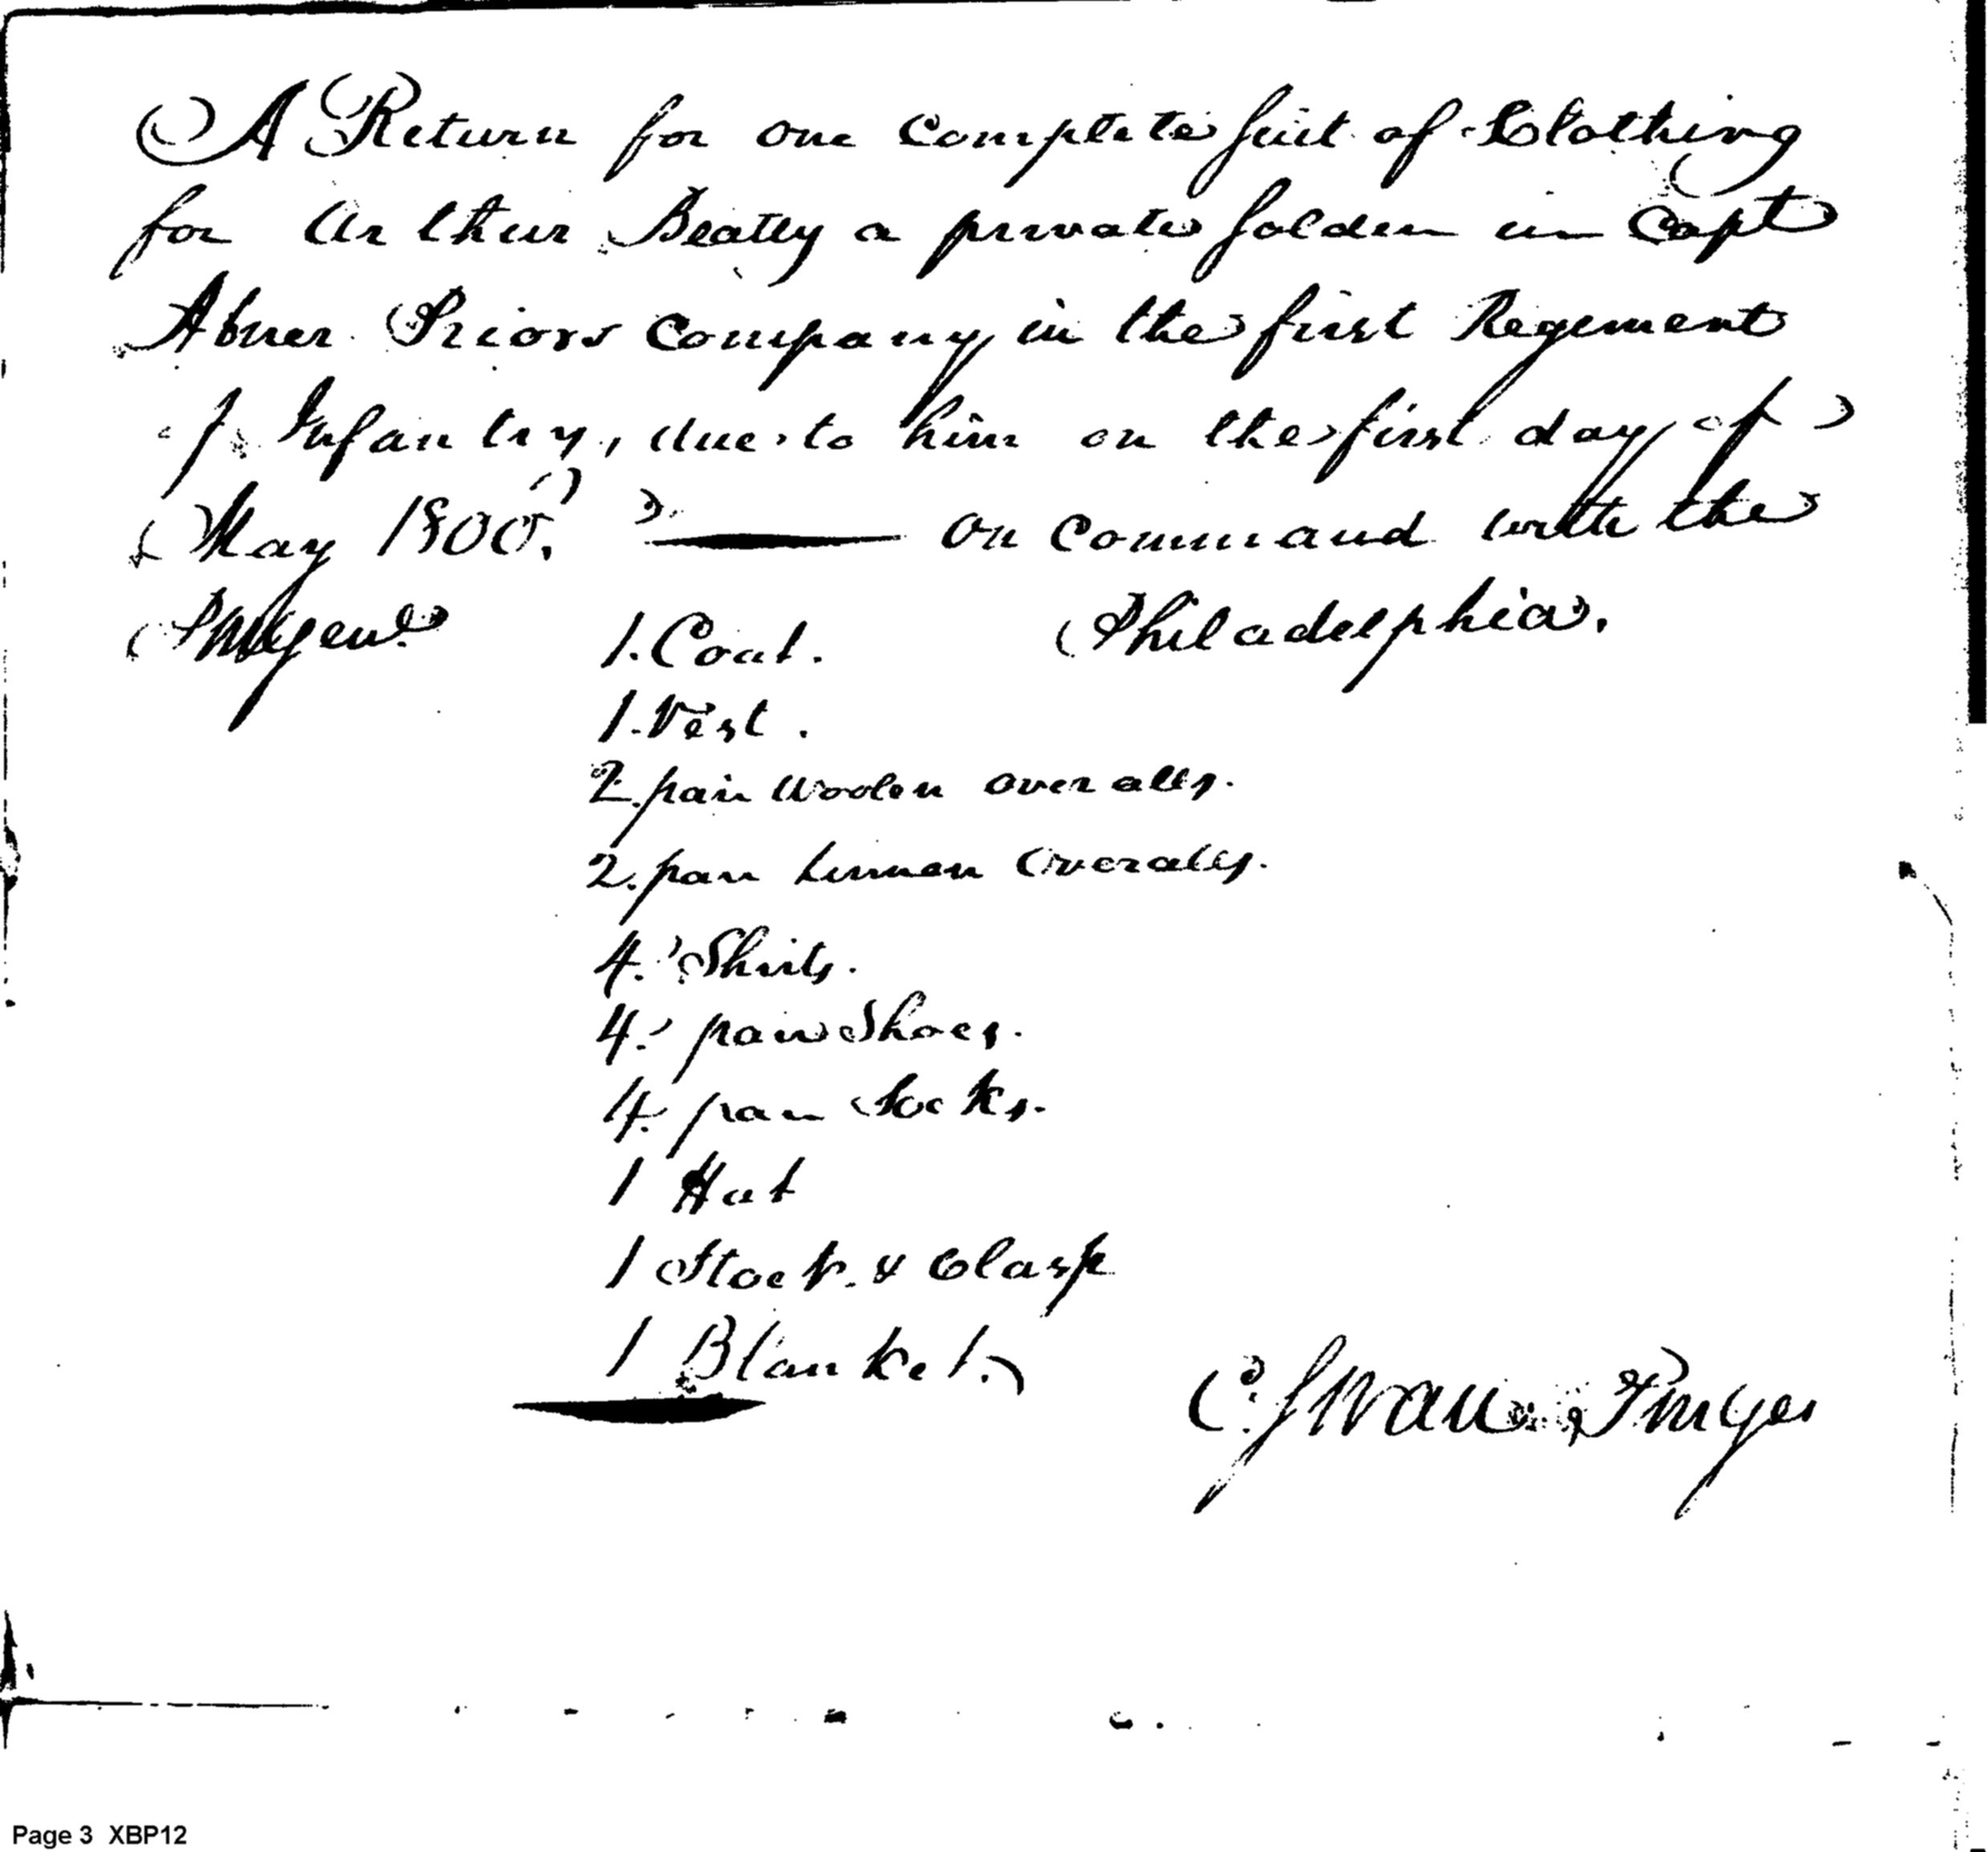 A Return for one complete suit of Clothing
for Arthur Beatty a private solder in Capt
Abner Priors Company in the first Regement
of Infantry, due to him on the first day of
May 1800. on command with the
PMGenl Philadelphia.
1. Coat.
1. Vest.
2. pair Woolen overalls.
2. pair Linnen Overalls.
4. Shirts.
4. pair Shoes.
4. pair Socks.
1 Hat
1 Stock & Clasp
1 Blanket.
C. Swan PMGen
Page 3 XBP12